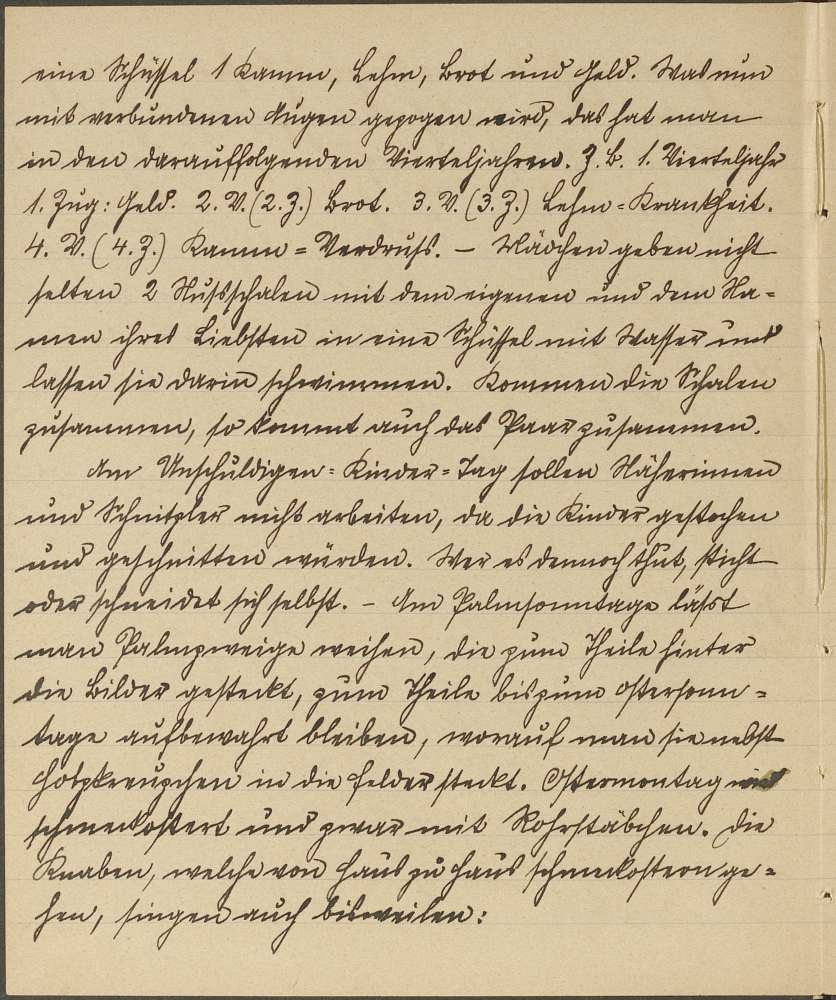 eine Schüssel 1 Kamm, Lehm, Brot und Geld. Was nun
mit verbundenen Augen gezogen wird, das hat man
in den darauffolgenden Vierteljahren. Z. B. 1. Vierteljahr
1. Zug: Geld. 2. V. (2. Z.) Brot. 3. V. (3. Z.) Lehm = Krankheit.
4. V. (4. Z.) Kamm = Verdruss. – Mädchen geben nicht
selten 2 Nussschalen mit dem eigenen und dem Na=
men ihres Liebsten in eine Schüssel mit Wasser und
lassen sie darin schwimmen. Kommen die Schalen
zusammen, so kommt auch das Paar zusammen.
Am Unschuldigen=Kinder=Tag sollen Näherinnen
und Schnitzler nicht arbeiten, da die Kinder gestochen
und geschnitten würden. Wer es dennoch thut, sticht
oder schneidet sich selbst. – Am Palmsonntage lässt
man Palmzweige weihen, die zum Theile hinter
die Bilder gesteckt, zum Theile bis zum Ostersonn=
tage aufbewahrt bleiben, worauf man sie nebst
Holzkreuzchen in die Felder steckt. Ostermontag wird
schmeckostert und zwar mit Rohrstäbchen. Die
Knaben, welche von Haus zu Haus schmeckostern ge=
hen, singen auch bisweilen: